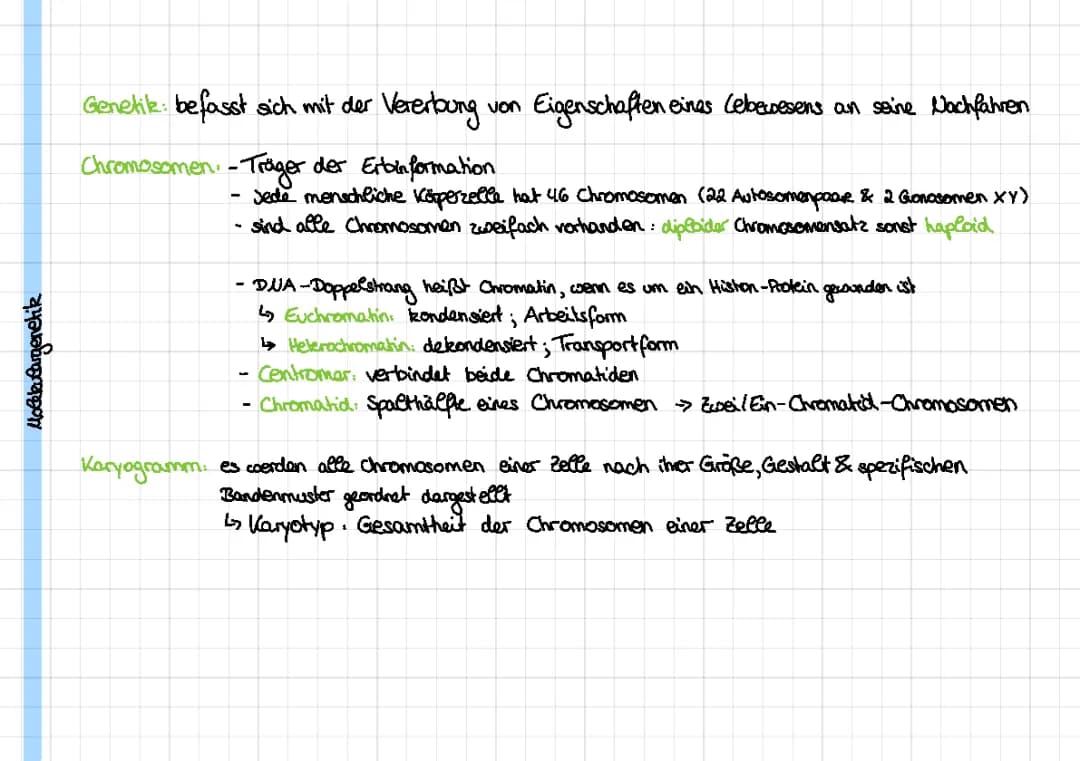 Genetik: befasst sich mit der Vererbung von Eigenschaften eines Lebewesens an seine Nachfahren
Chromosomen: - Träger der Erbinformation
- Jede menschliche Körperzelle hat 46 Chromosomen (22 Autosomenpaare & 2 Gonosomen XY)
- sind alle Chromosomen zweifach vorhanden: diploider Chromosomensatz sonst haploid
- DNA-Doppelstrang heißt Chromatin, wenn es um ein Histon-Protein gewunden ist
↳ Euchromatin: kondensiert; Arbeitsform
↳ Heterochromatin: dekondensiert; Transportform
- Centromer: verbindet beide Chromatiden
- Chromatid: Spalthälfte eines Chromosomen → Zwei/Ein-Chromatid-Chromosomen
Karyogramm: es werden alle Chromosomen einer Zelle nach ihrer Größe, Gestalt & spezifischen
Bandenmuster geordnet dargestellt
↳ Karyotyp: Gesamtheit der Chromosomen einer Zelle
Molekulargenetik